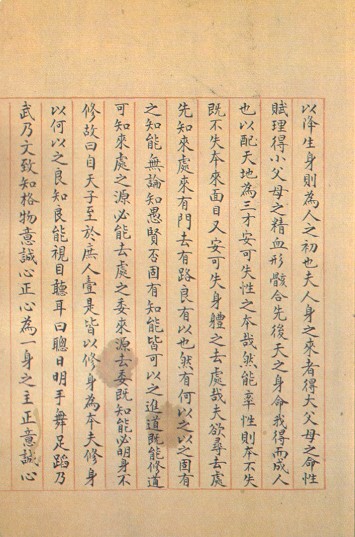 以降生身則為人之初也夫人身之來者得大父母之命性
賦理得小父母之精血形骸合先後天之身命我得而成人
也以配天地為三才安可失性之本哉然能率性則本不失
既不失本來面目又安可失身體之去處哉夫欲尋去處
先知來處來有門去有路良有以也然有何以之以之固有
之知能無論知愚賢否固有知能皆可以之進道既能修道
可知來處之源必能去處之委來源去委既知能必明身不
修故曰自天子至於庶人壹是皆以修身為本夫修身
以何以之良知良能視目聽耳曰聰曰明手舞足蹈乃
武乃文致知格物意誠心正心為一身之主正意誠心